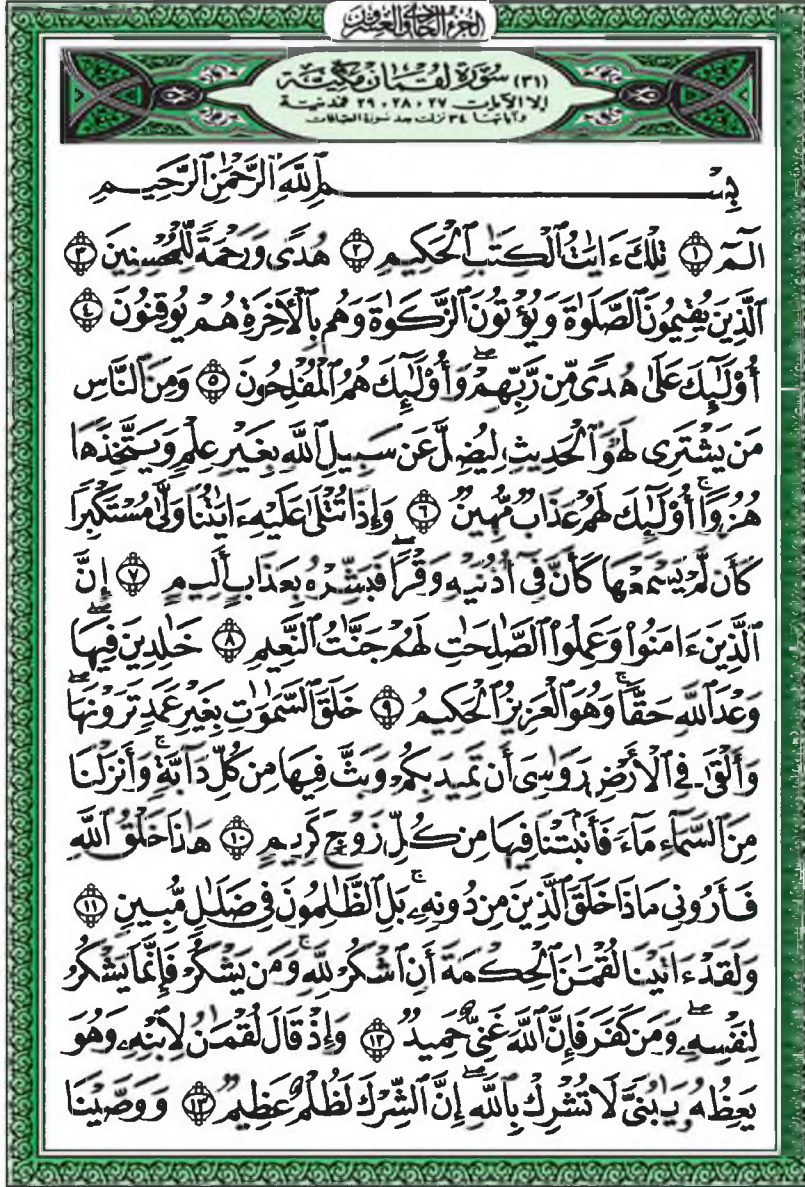 الجزء الحادي والعشرون
(٣١) سُورَة لقمَان مَكيّة
إلا الآيات ٢٧، ٢٨، ٢٩ فمدنية
وآياتها ٣٤ نزلت بعد سورة الصافات
بِسْمِ ٱللَّهِ ٱلرَّحْمَٰنِ ٱلرَّحِيمِ
الٓمٓ ﴿١﴾ تِلْكَ ءَايَٰتُ ٱلْكِتَٰبِ ٱلْحَكِيمِ ﴿٢﴾ هُدًى وَرَحْمَةً لِّلْمُحْسِنِينَ ﴿٣﴾
ٱلَّذِينَ يُقِيمُونَ ٱلصَّلَوٰةَ وَيُؤْتُونَ ٱلزَّكَوٰةَ وَهُم بِٱلْأَخِرَةِ هُمْ يُوقِنُونَ ﴿٤﴾
أُوْلَٰٓئِكَ عَلَىٰ هُدًى مِّن رَّبِّهِمْۖ وَأُوْلَٰٓئِكَ هُمُ ٱلْمُفْلِحُونَ ﴿٥﴾ وَمِنَ ٱلنَّاسِ
مَن يَشْتَرِى لَهْوَ ٱلْحَدِيثِ لِيُضِلَّ عَن سَبِيلِ ٱللَّهِ بِغَيْرِ عِلْمٍ وَيَتَّخِذَهَا
هُزُوًاۚ أُوْلَٰٓئِكَ لَهُمْ عَذَابٌ مُّهِينٌ ﴿٦﴾ وَإِذَا تُتْلَىٰ عَلَيْهِ ءَايَٰتُنَا وَلَّىٰ مُسْتَكْبِرًا
كَأَن لَّمْ يَسْمَعْهَا كَأَنَّ فِىٓ أُذُنَيْهِ وَقْرًاۖ فَبَشِّرْهُ بِعَذَابٍ أَلِيمٍ ﴿٧﴾ إِنَّ
ٱلَّذِينَ ءَامَنُوا۟ وَعَمِلُوا۟ ٱلصَّٰلِحَٰتِ لَهُمْ جَنَّٰتُ ٱلنَّعِيمِ ﴿٨﴾ خَٰلِدِينَ فِيهَاۖ
وَعْدَ ٱللَّهِ حَقًّاۚ وَهُوَ ٱلْعَزِيزُ ٱلْحَكِيمُ ﴿٩﴾ خَلَقَ ٱلسَّمَٰوَٰتِ بِغَيْرِ عَمَدٍ تَرَوْنَهَاۖ
وَأَلْقَىٰ فِى ٱلْأَرْضِ رَوَٰسِىَ أَن تَمِيدَ بِكُمْ وَبَثَّ فِيهَا مِن كُلِّ دَآبَّةٍۚ وَأَنزَلْنَا
مِنَ ٱلسَّمَآءِ مَآءً فَأَنۢبَتْنَا فِيهَا مِن كُلِّ زَوْجٍ كَرِيمٍ ﴿١٠﴾ هَٰذَا خَلْقُ ٱللَّهِ
فَأَرُونِى مَاذَا خَلَقَ ٱلَّذِينَ مِن دُونِهِۦۚ بَلِ ٱلظَّٰلِمُونَ فِى ضَلَٰلٍ مُّبِينٍ ﴿١١﴾
وَلَقَدْ ءَاتَيْنَا لُقْمَٰنَ ٱلْحِكْمَةَ أَنِ ٱشْكُرْ لِلَّهِۚ وَمَن يَشْكُرْ فَإِنَّمَا يَشْكُرُ
لِنَفْسِهِۦۖ وَمَن كَفَرَ فَإِنَّ ٱللَّهَ غَنِىٌّ حَمِيدٌ ﴿١٢﴾ وَإِذْ قَالَ لُقْمَٰنُ لِٱبْنِهِۦ وَهُوَ
يَعِظُهُۥ يَٰبُنَىَّ لَا تُشْرِكْ بِٱللَّهِۖ إِنَّ ٱلشِّرْكَ لَظُلْمٌ عَظِيمٌ ﴿١٣﴾ وَوَصَّيْنَا